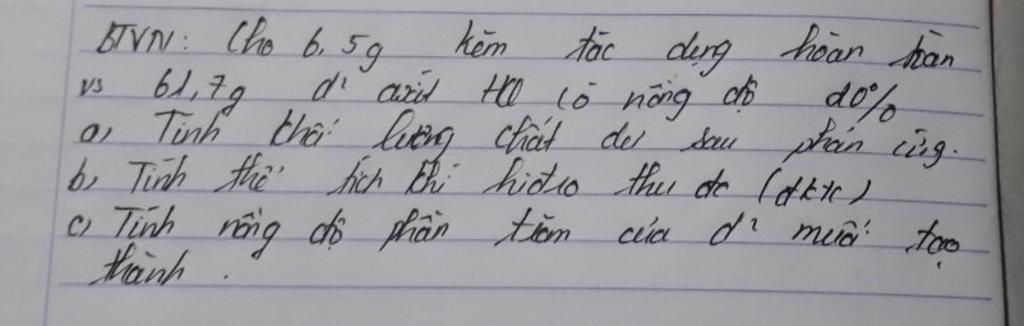 BTVN: Cho 6,5g kẽm tác dụng hoàn toàn
vs 61,7g d² axit HCl có nồng độ 20%
a) Tính khối lượng chất dư sau phản ứng.
b) Tính thể tích khí hiđro thu đc (đktc)
c) Tính nồng độ phần trăm của d² muối tạo
thành.